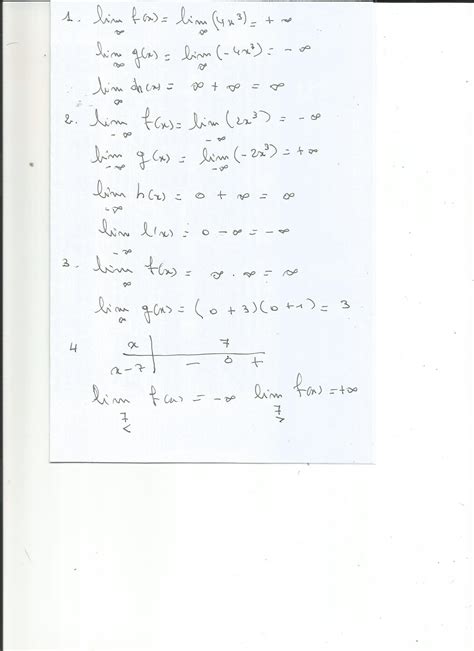 1. lim f(x) = lim (4x³) = + ∞
∞ ∞
lim g(x) = lim (-4x³) = - ∞
∞ ∞
lim h(x) = ∞ + ∞ = ∞
∞
2. lim f(x) = lim (2x³) = - ∞
-∞ -∞
lim g(x) = lim (-2x³) = + ∞
-∞ -∞
lim h(x) = 0 + ∞ = ∞
-∞
lim l(x) = 0 - ∞ = - ∞
-∞
3. lim f(x) = ∞ . ∞ = ∞
∞
lim g(x) = (0 + 3)(0 + 1) = 3
∞
4 x 7
x - 7 - 0 +
lim f(x) = - ∞ lim f(x) = + ∞
7 7
< >